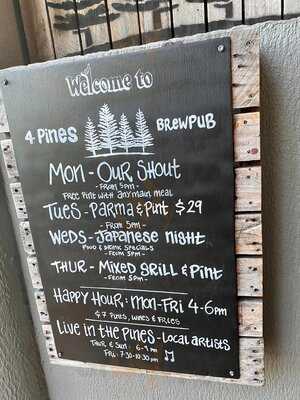 Welcome to
4 Pines Brewpub
Mon - Our Shout
- From 5pm -
Free pint with any main meal
Tues - Parma & Pint $29
- From 5pm -
Weds - Japanese night
Food & drink specials
- From 5pm -
Thur - Mixed Grill & Pint
- From 5pm -
Happy Hour: Mon-Fri 4-6pm
$7 Pints, Wines & Fries
Live in the Pines - Local artists
Thur & Sun: 6-9pm
Fri: 7:30-10:30pm